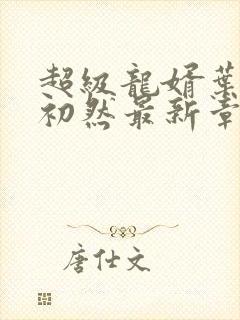 超級龍婿葉
初然最新章
唐仕文